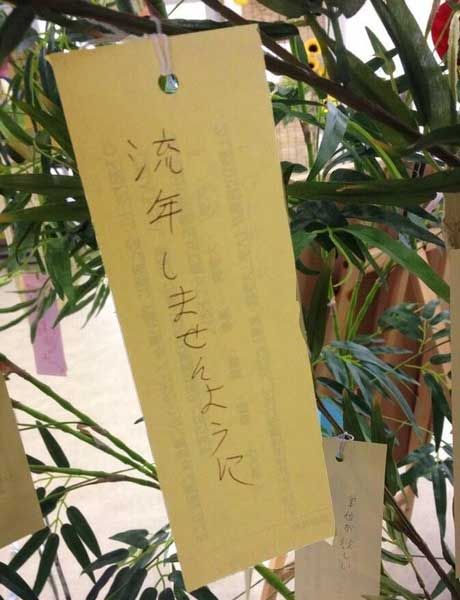 流年しませんように
単位が欲しい